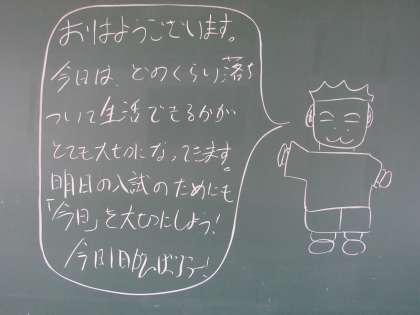 おはようございます。
今日は、どのくらい落ち
ついて生活できるかが
とても大切になってきます。
明日の入試のためにも
「今日」を大切にしよう!
今日1日がんばろう!